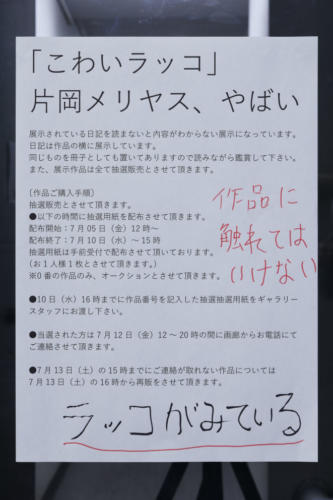 「こわいラッコ」
片岡メリヤス、やばい
展示されている日記を読まないと内容がわからない展示になっています。
日記は作品の横に展示しています。
同じものを冊子としても置いてありますので読みながら鑑賞して下さい。
また、展示作品は全て抽選販売とさせて頂きます。
〔作品ご購入手順〕
抽選販売とさせて頂きます。
●以下の時間に抽選用紙を配布させて頂きます。
配布開始：7月05日（金）12時〜
配布終了：7月10日（水）〜15時
抽選用紙は手前受付で配布させて頂いております。
（お１人様１枚とさせて頂きます。）
※0番の作品のみ、オークションとさせて頂きます。
作品に
触れては
いけない
●10日（水）16時までに作品番号を記入した抽選抽選用紙をギャラリー
スタッフにお渡し下さい。
●当選された方は7月12日（金）12〜20時の間に画廊からお電話にて
ご連絡させて頂きます。
●7月13日（土）の15時までにご連絡が取れない作品については
7月13日（土）の16時から再販をさせて頂きます。
ラッコがみている